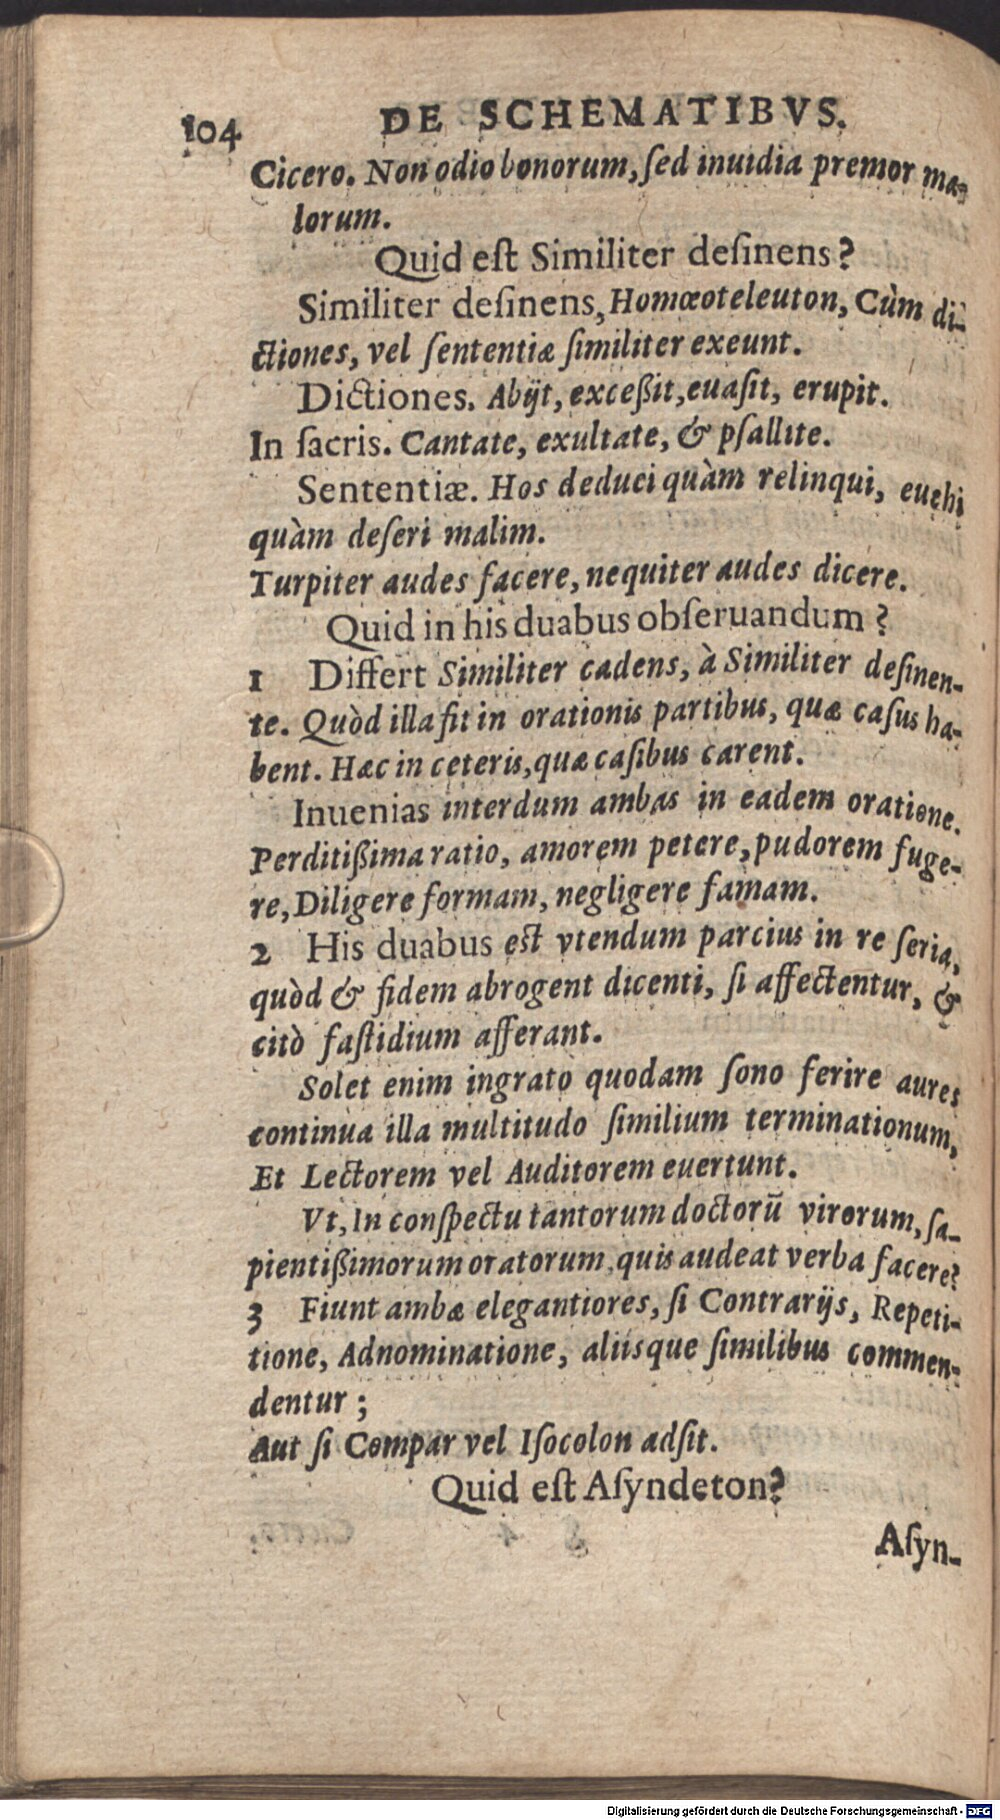 104 DE SCHEMATIBVS.
Cicero. Non odio bonorum, ſed inuidia premor ma-
lorum.
Quid eſt Similiter deſinens?
Similiter deſinens, Homœoteleuton, Cùm di-
ctiones, vel ſententiæ ſimiliter exeunt.
Dictiones. Abijt, exceßit, euaſit, erupit.
In ſacris. Cantate, exultate, & pſallite.
Sententiæ. Hos deduci quàm relinqui, euehi
quàm deſeri malim.
Turpiter audes facere, nequiter audes dicere.
Quid in his duabus obſeruandum?
1 Differt Similiter cadens, à Similiter deſinen-
te. Quòd illa fit in orationis partibus, quæ caſus ha-
bent. Hæc in ceteris, quæ caſibus carent.
Inuenias interdum ambas in eadem oratione.
Perditißima ratio, amorem petere, pudorem fuge-
re, Diligere formam, negligere famam.
2 His duabus eſt vtendum parcius in re ſeria,
quòd & fidem abrogent dicenti, ſi affectentur, &
citò faſtidium afferant.
Solet enim ingrato quodam ſono ferire aures
continua illa multitudo ſimilium terminationum,
Et Lectorem vel Auditorem euertunt.
Vt, In conſpectu tantorum doctorū virorum, ſa-
pientißimorum oratorum, quis audeat verba facere?
3 Fiunt ambæ elegantiores, ſi Contrarijs, Repeti-
tione, Adnominatione, aliisque ſimilibus commen-
dentur;
Aut ſi Compar vel Iſocolon adſit.
Quid eſt Aſyndeton?
Aſyn-
Digitalisierung gefördert durch die Deutsche Forschungsgemeinschaft - DFG